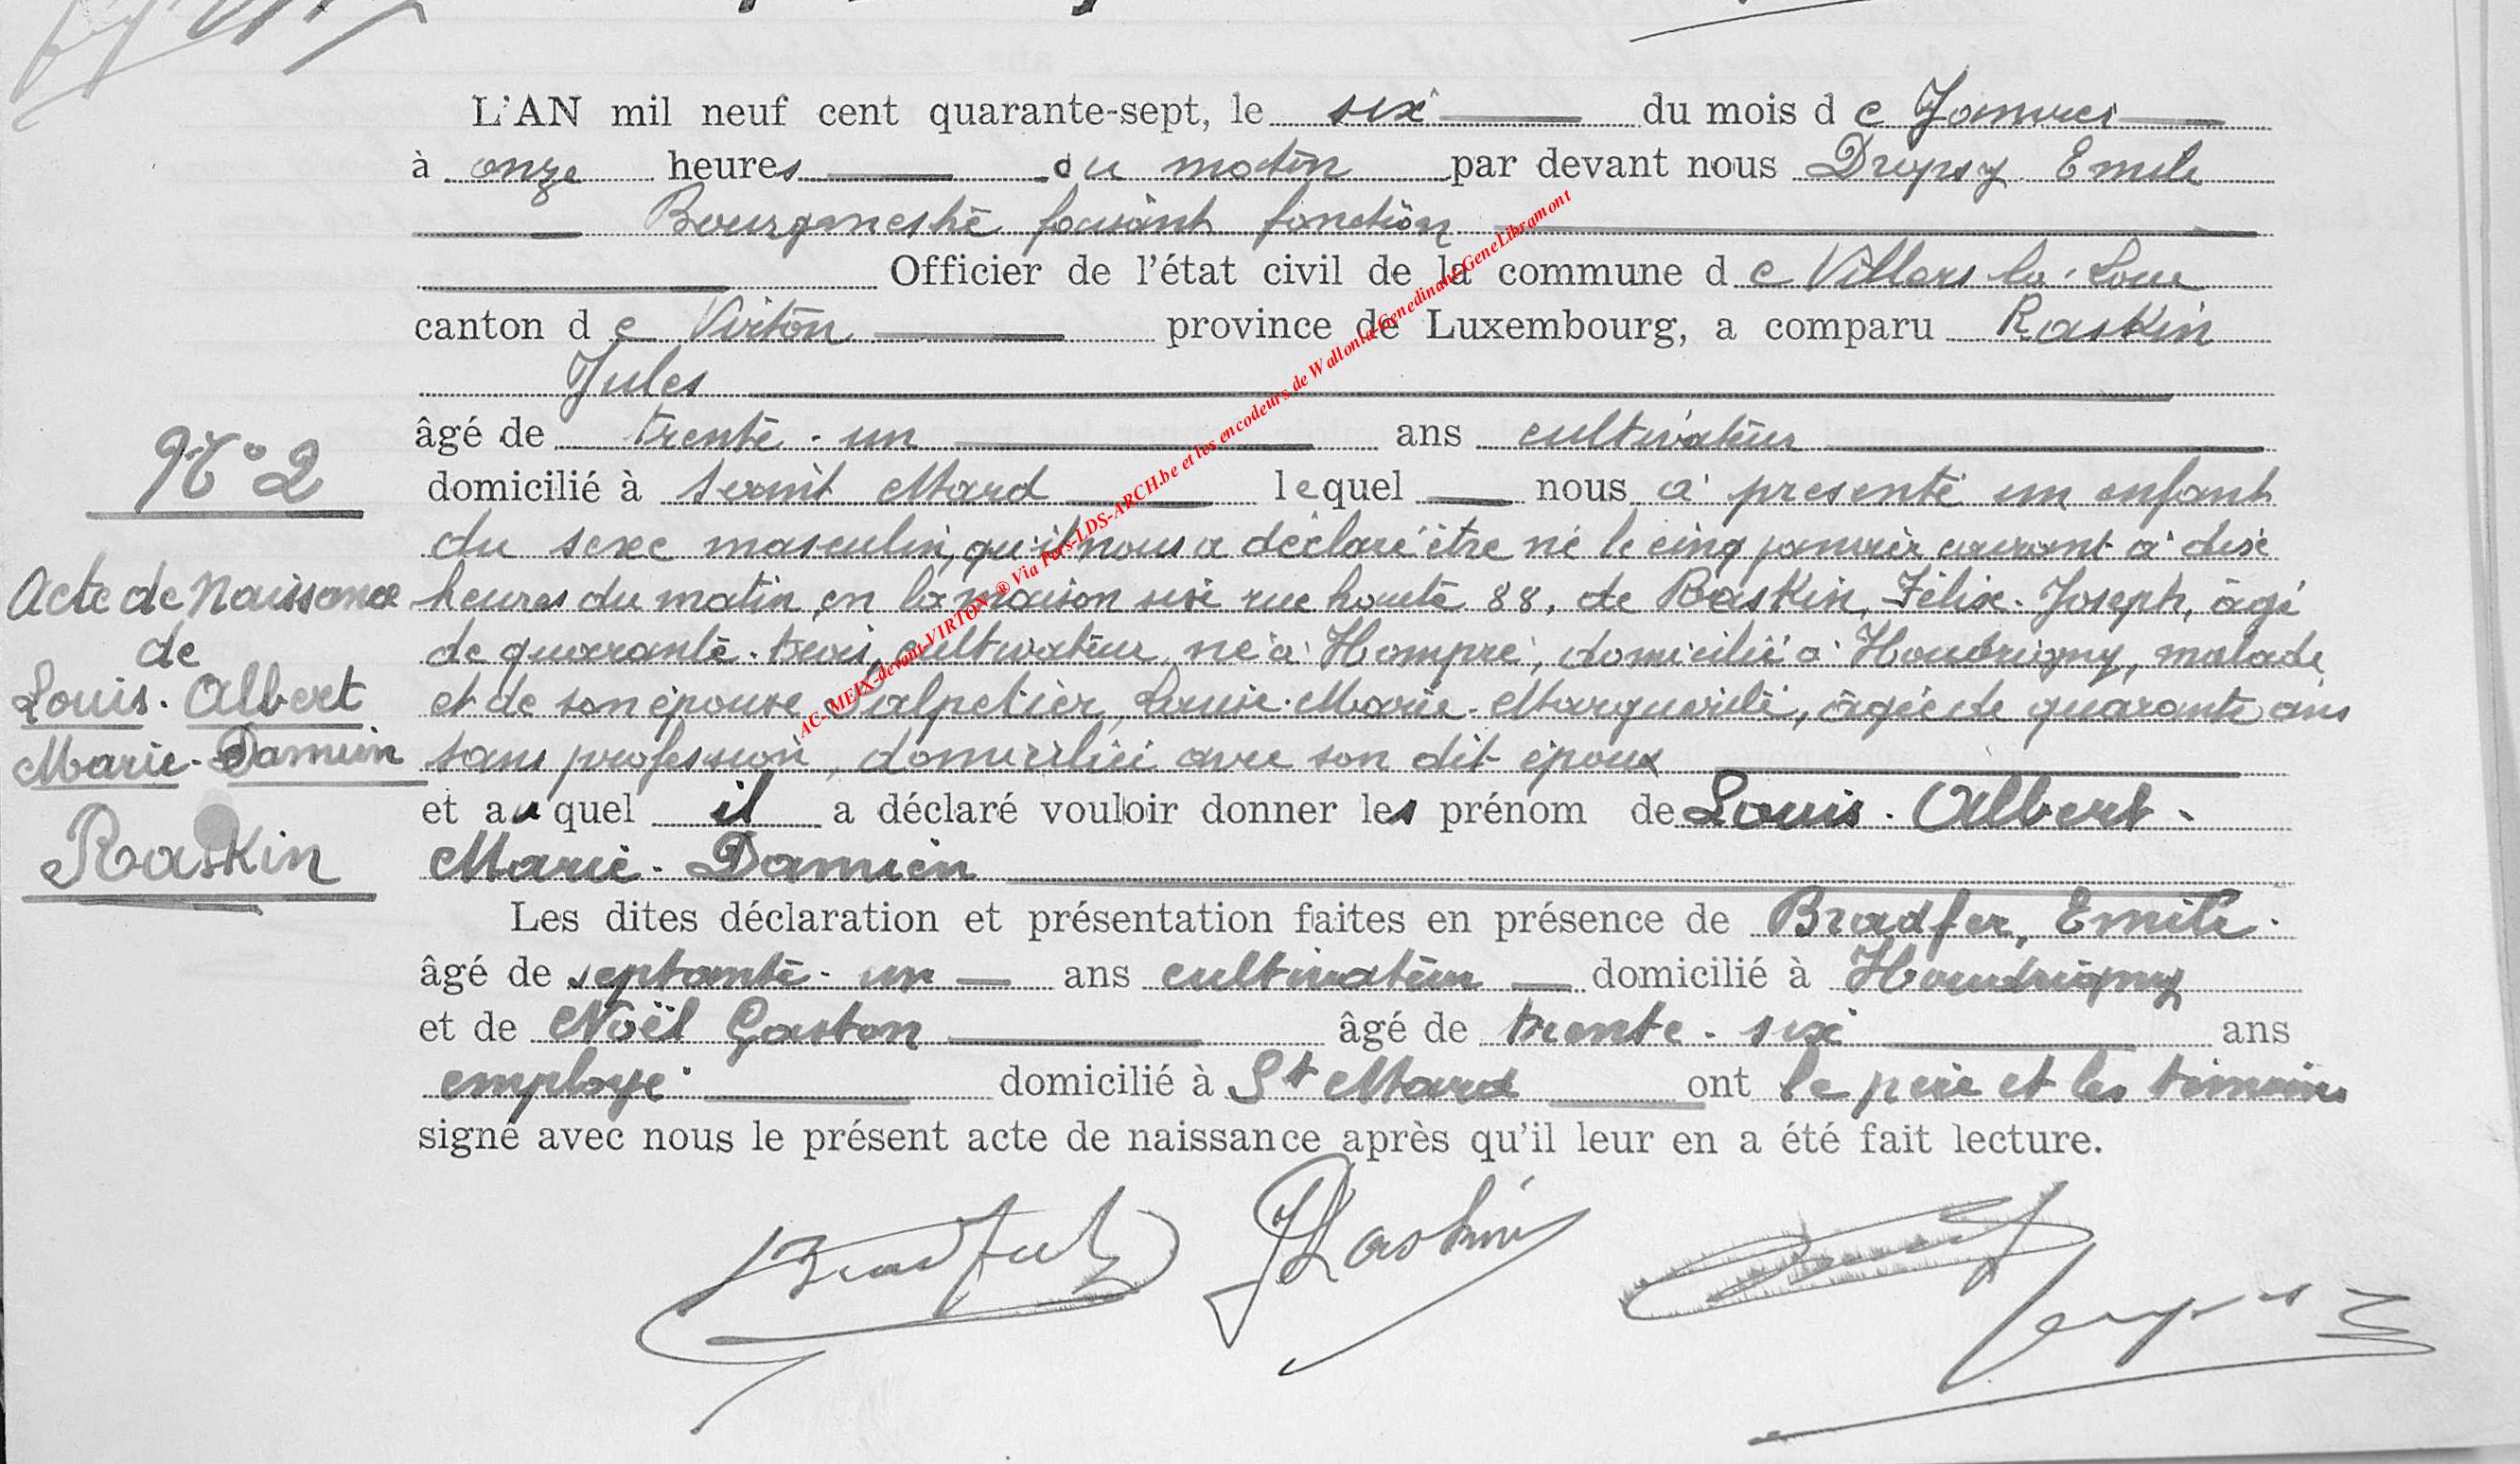 L'AN mil neuf cent quarante-sept, le six du mois de Janvier
à onze heures du matin par devant nous Dropsy Emile
Bourgmestre faisant fonction
Officier de l'état civil de la commune de Villers-la-Loue
canton de Virton province de Luxembourg, a comparu Raskin
Jules
âgé de trente-un ans cultivateur
N° 2
domicilié à Saint Mard lequel nous a présenté un enfant
du sexe masculin, qu'il nous a déclaré être né le cinq janvier courant à dix
Acte de Naissance
heures du matin, en la maison sise rue haute 88, de Raskin, Félix-Joseph, âgé
de
de quarante-trois, cultivateur, né à Hompré, domicilié à Houdrigny, malade
Louis-Albert
et de son épouse Salpetier, Louise-Marie-Marguerite, âgée de quarante ans
Marie-Damien
sans profession, domiciliée avec son dit époux
et auquel il a déclaré vouloir donner les prénom de Louis-Albert-
Raskin
Marie-Damien
Les dites déclaration et présentation faites en présence de Bradfer, Emile
âgé de septante-un ans cultivateur domicilié à Houdrigny
et de Noël Gaston âgé de trente-six ans
employé domicilié à St Mard ont le père et les témoins
signé avec nous le présent acte de naissance après qu'il leur en a été fait lecture.
Bradfer JRaskin
AC-MEIX-devant-VIRTON ® Via Pers-LDS-ARCH.be et les encodeurs de Wallonia-Genedinant-GeneLibramont